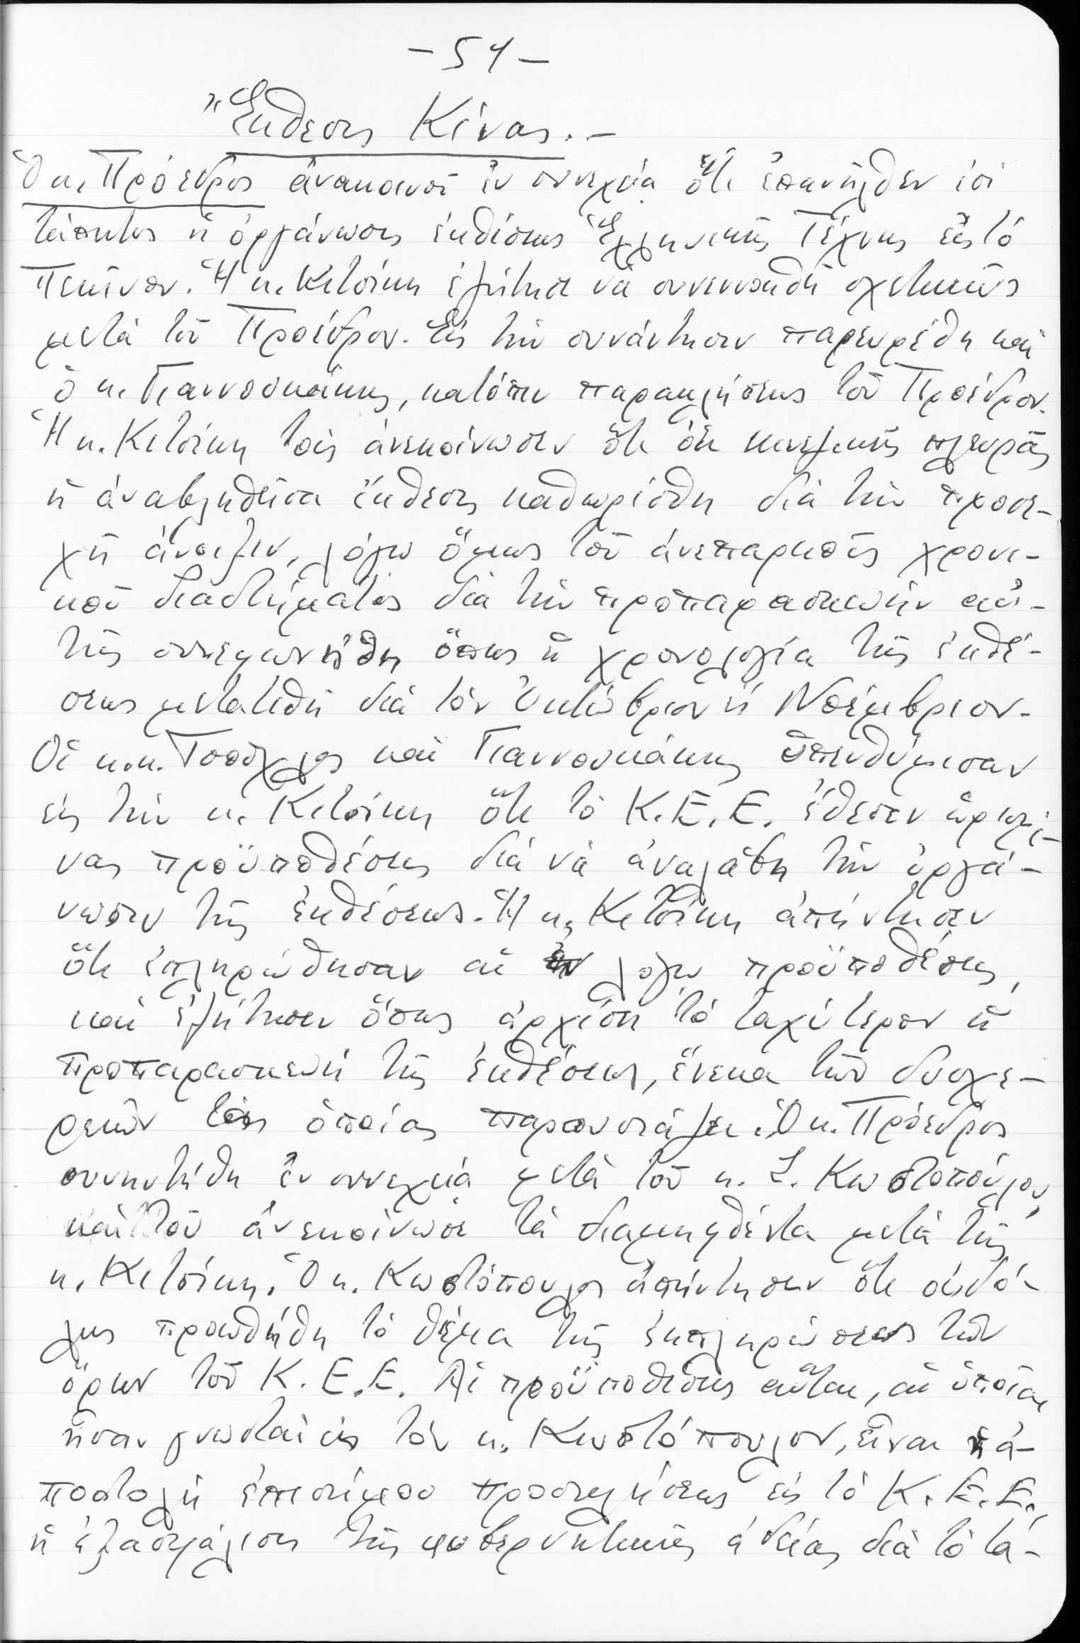 - 51 -
"Ἔκθεσις Κίνας.-
Ὁ κ. Πρόεδρος ἀνακοινοῖ ἐν συνεχείᾳ ὅτι ἐπανῆλθεν ἐπὶ
τάπητος ἡ ὀργάνωσις ἐκθέσεως Ἑλληνικῆς Τέχνης εἰς τὸ
Πεκῖνον. Ἡ κ. Κιτσίκη ἐζήτησε νὰ συνεννοηθῆ σχετικῶς
μετὰ τοῦ Προέδρου. Εἰς τὴν συνάντησιν παρευρέθη καὶ
ὁ κ. Γιαννουκάκης, κατόπιν παρακλήσεως τοῦ Προέδρου.
Ἡ κ. Κιτσίκη τοῖς ἀνεκοίνωσεν ὅτι ἐκ κινεζικῆς πλευρᾶς
ἡ ἀναβληθεῖσα ἔκθεσις καθωρίσθη διὰ τὴν προσε-
χῆ ἄνοιξιν, λόγῳ ὅμως τοῦ ἀνεπαρκοῦς χρονι-
κοῦ διαστήματος διὰ τὴν προπαρασκευὴν αὐ-
τῆς συνεφωνήθη ὅπως ἡ χρονολογία τῆς ἐκθέ-
σεως μετατεθῆ διὰ τὸν Ὀκτώβριον ἢ Νοέμβριον.
Οἱ κ.κ. καὶ Γιαννουκάκης ὑπενθύμισαν
εἰς τὴν κ. Κιτσίκη ὅτι τὸ Κ.Ε.Ε. ἔθεσεν ὡρισμέ-
νας προϋποθέσεις διὰ νὰ ἀναλάβη τὴν ὀργά-
νωσιν τῆς ἐκθέσεως. Ἡ κ. Κιτσίκη ἀπήντησεν
ὅτι ἐπληρώθησαν αἱ ἐν λόγῳ προϋποθέσεις,
καὶ ἐζήτησεν ὅπως ἀρχίση τὸ ταχύτερον ἡ
προπαρασκευὴ τῆς ἐκθέσεως, ἕνεκα τῶν δυσχε-
ρειῶν τὰς ὁποίας παρουσιάζει. Ὁ κ. Πρόεδρος
συνηντήθη ἐν συνεχείᾳ μετὰ τοῦ κ. Σ. Κωστοπούλου,
καὶ τοῦ ἀνεκοίνωσε τὰ διαμειφθέντα μετὰ τῆς
κ. Κιτσίκη. Ὁ κ. Κωστόπουλος ἀπήντησεν ὅτι οὐδό-
λως προωθήθη τὸ θέμα τῆς ἐκπληρώσεως τῶν
ὅρων τοῦ Κ.Ε.Ε. Αἱ προϋποθέσεις αὗται, αἱ ὁποῖαι
ἦσαν γνωσταὶ εἰς τὸν κ. Κωστόπουλον, εἶναι ἡ ἀ-
ποστολὴ ἐπισήμου προσκλήσεως εἰς τὸ Κ.Ε.Ε.,
ἡ ἐξασφάλισις τῆς κυβερνητικῆς ἀδείας διὰ τὸ τα-